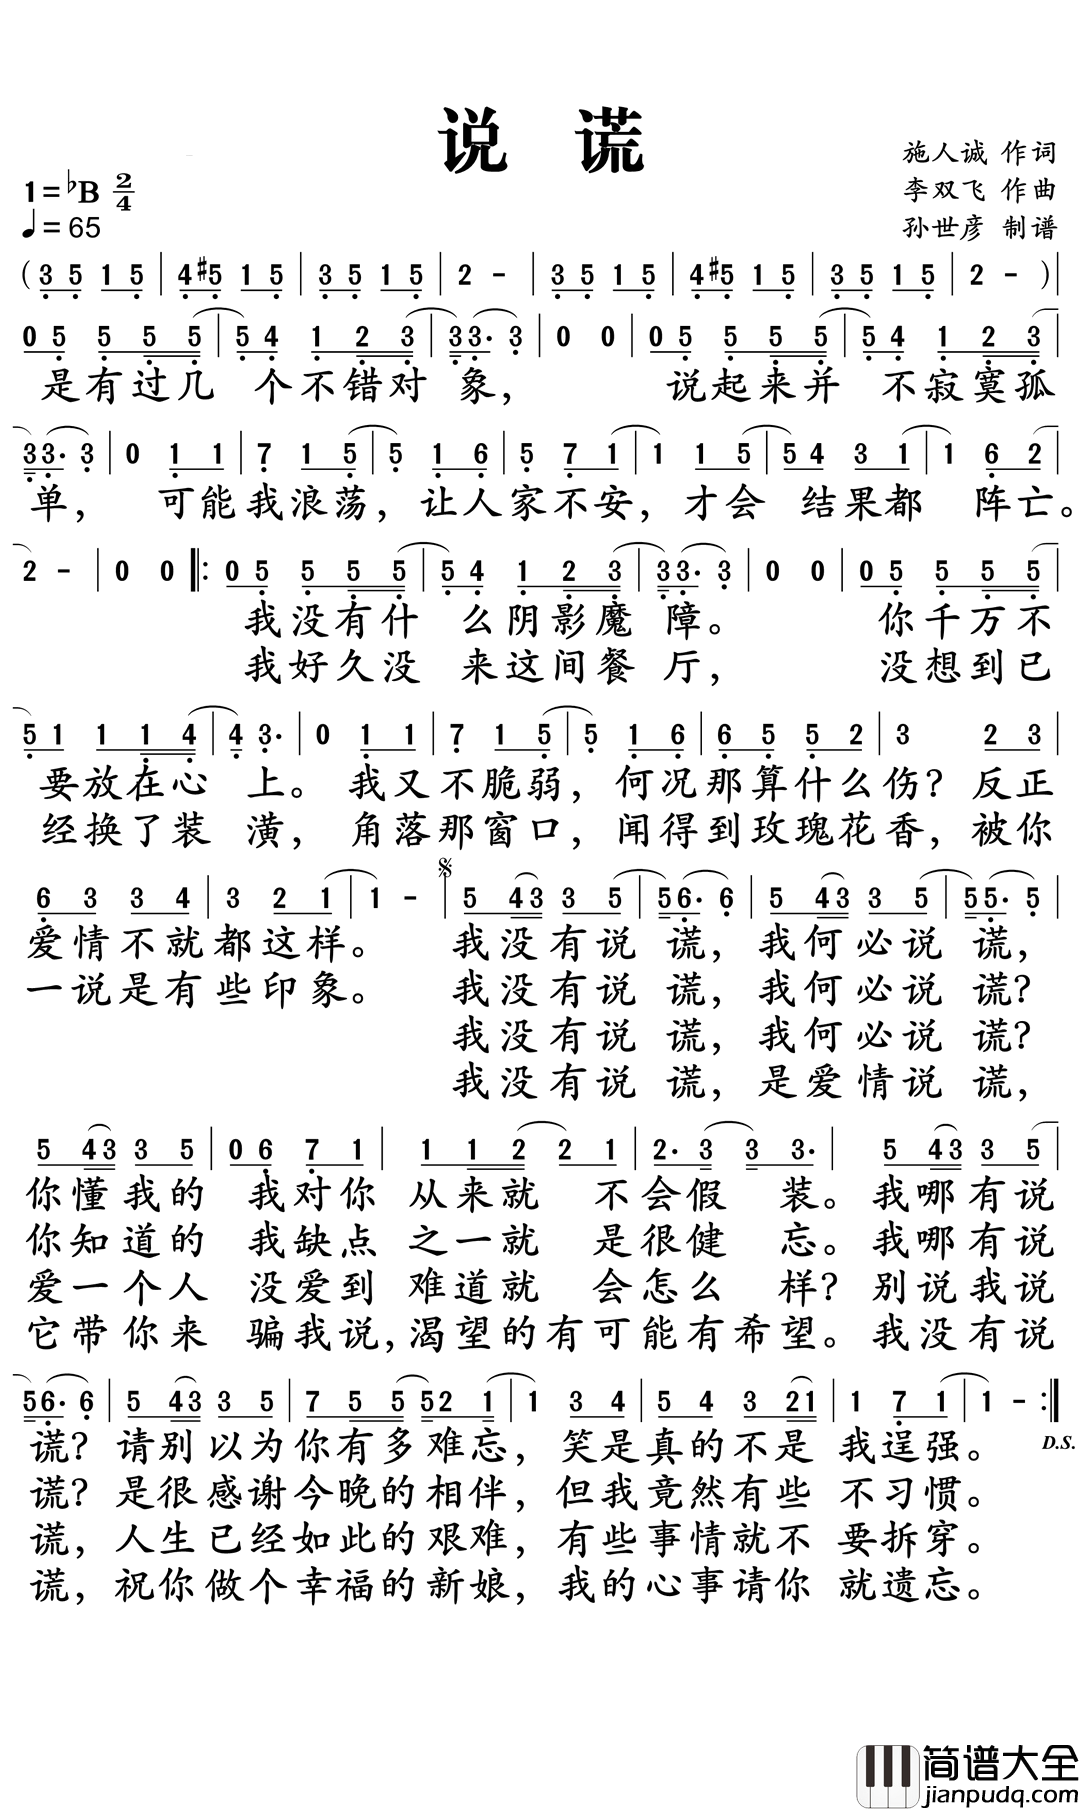 说 谎
施人诚 作词
1=♭B 2/4
李双飞 作曲
♩=65
孙世彦 制谱
( 3 5 1 5 | 4 #5 1 5 | 3 5 1 5 | 2 - | 3 5 1 5 | 4 #5 1 5 | 3 5 1 5 | 2 - ) |
0 5 5 5 5 | 5 4 1 2 3 | 3 3· 3 | 0 0 | 0 5 5 5 5 | 5 4 1 2 3 |
是有过几 个不错对 象， 说起来并 不寂寞孤
3 3· 3 | 0 1 1 | 7 1 5 | 5 1 6 | 5 7 1 | 1 1 5 | 5 4 3 1 | 1 6 2 |
单， 可能我浪荡，让人家不安，才会 结果都 阵亡。
2 - | 0 0 |: 0 5 5 5 5 | 5 4 1 2 3 | 3 3· 3 | 0 0 | 0 5 5 5 5 |
我没有什 么阴影魔 障。 你千万不
我好久没 来这间餐 厅， 没想到已
5 1 1 1 4 | 4 3· | 0 1 1 | 7 1 5 | 5 1 6 | 6 5 5 2 | 3 2 3 |
要放在心 上。 我又不脆弱，何况那算什么伤？反正
经换了装 潢， 角落那窗口，闻得到玫瑰花香，被你
6 3 3 4 | 3 2 1 | 1 - | 5 4 3 3 5 | 5 6· 6 | 5 4 3 3 5 | 5 5· 5 |
爱情不就都这样。 我没有说 谎，我何必说 谎，
一说是有些印象。 我没有说 谎，我何必说 谎？
我没有说 谎，我何必说 谎？
我没有说 谎，是爱情说 谎，
5 4 3 3 5 | 0 6 7 1 | 1 1 2 2 1 | 2· 3 3 3 | 5 4 3 3 5 |
你懂我的 我对你 从来就 不会假 装。我哪有说
你知道的 我缺点 之一就 是很健 忘。我哪有说
爱一个人 没爱到 难道就 会怎么 样？别说我说
它带你来 骗我说，渴望的有可能有希望。我没有说
5 6· 6 | 5 4 3 3 5 | 7 5 5 5 2 1 | 1 3 4 | 5 4 3 2 1 | 1 7 1 | 1 - :|
谎？请别以为你有多难忘，笑是真的不是 我逞强。
D.S.
谎？是很感谢今晚的相伴，但我竟然有些 不习惯。
谎，人生已经如此的艰难，有些事情就不 要拆穿。
谎，祝你做个幸福的新娘，我的心事请你 就遗忘。
简谱大全
jianpudq.com